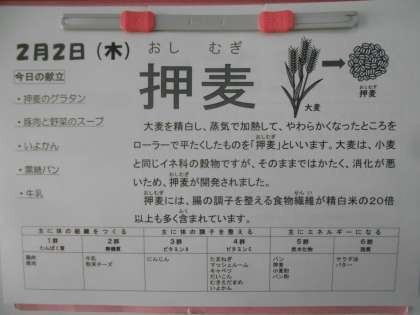 2月2日（木）
おし むぎ
押麦
今日の献立
・押麦のグラタン
・豚肉と野菜のスープ
・いよかん
・黒糖パン
・牛乳
大麦
おしむぎ
押麦
大麦を精白し、蒸気で加熱して、やわらかくなったところを
おしむぎ
ローラーで平たくしたものを「押麦」といいます。大麦は、小麦
と同じイネ科の穀物ですが、そのままではかたく、消化が悪
おしむぎ
いため、押麦が開発されました。
おしむぎ せんい
押麦には、腸の調子を整える食物繊維が精白米の20倍
ふく
以上も多く含まれています。
主に体の組織をつくる 主に体の調子を整える 主にエネルギーになる
1群 2群 3群 4群 5群 6群
たんぱく質 無機質 ビタミンA ビタミンC 炭水化物 脂質
豚肉 牛乳 にんじん たまねぎ パン サラダ油
粉末チーズ マッシュルーム 押麦 バター
キャベツ 小麦粉
だいこん パン粉
むきえだまめ
いよかん